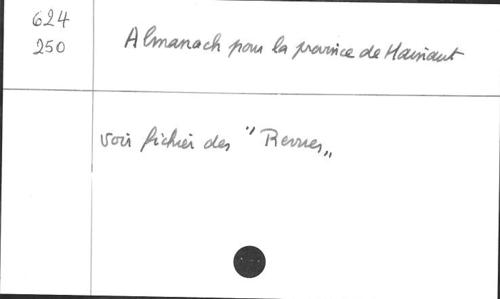 624
250
Almanach pour la province de Hainaut
Voir fichier des "Revues„